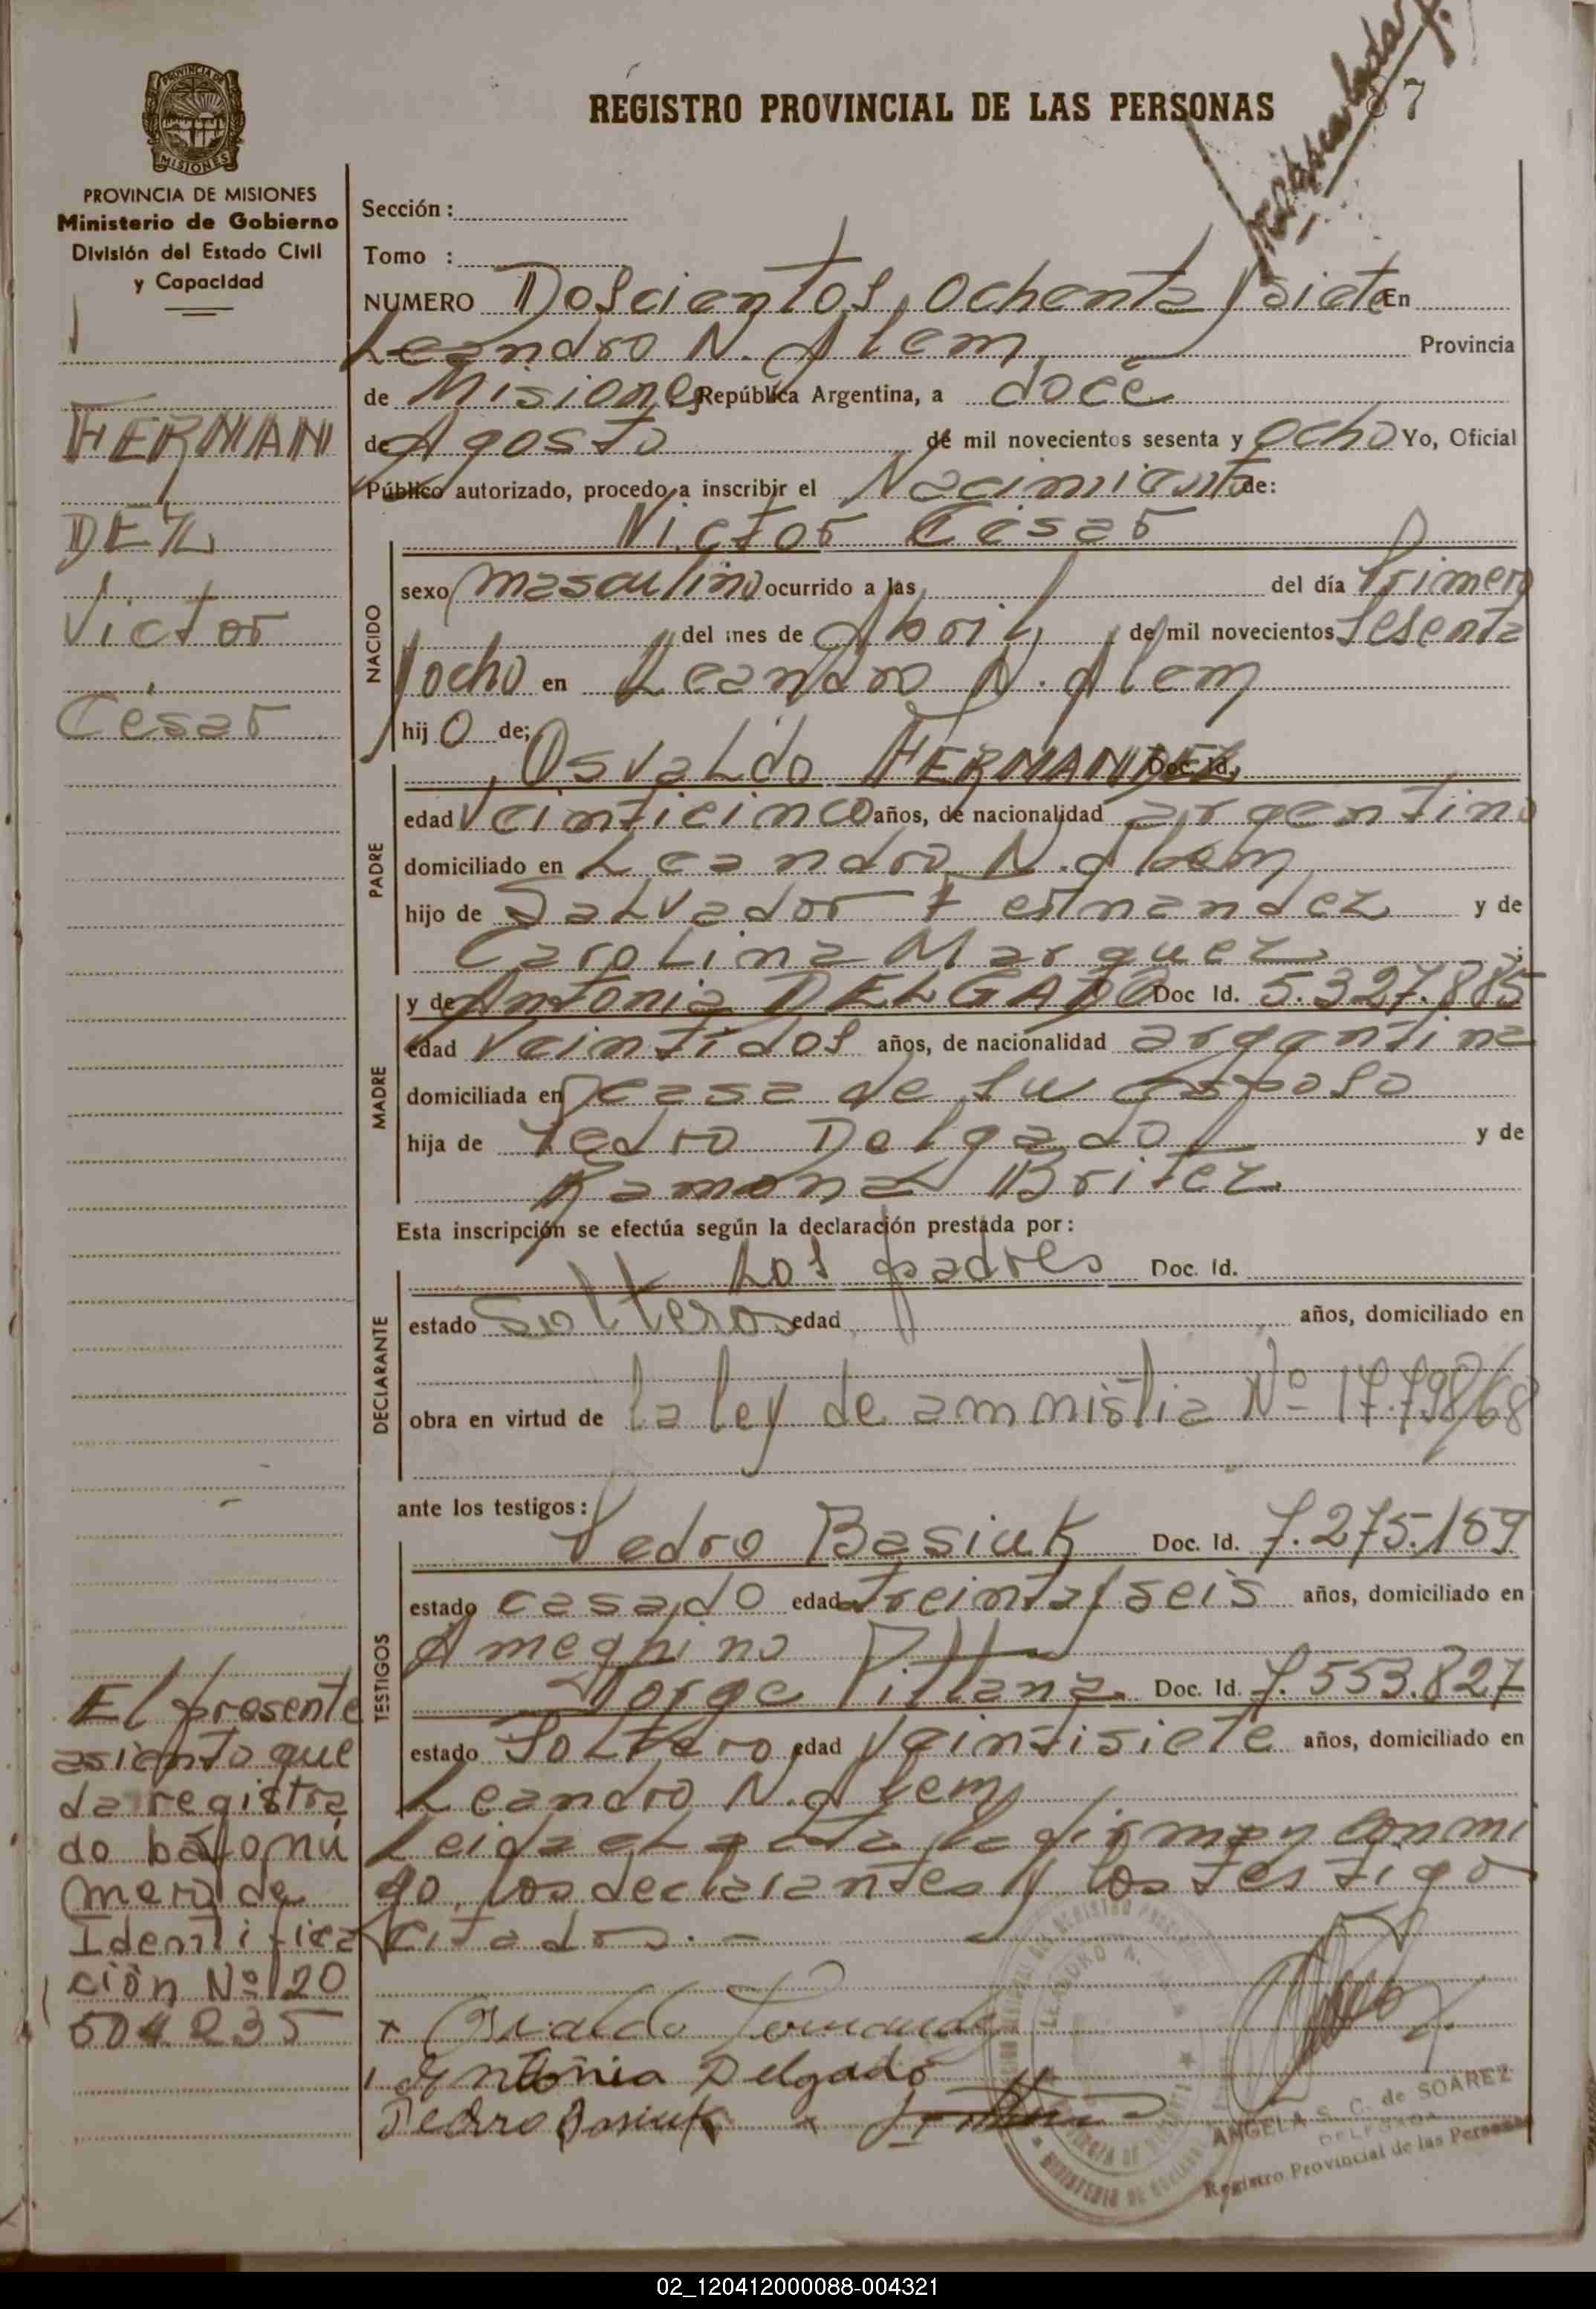 REGISTRO PROVINCIAL DE LAS PERSONAS
7
PROVINCIA DE
MISIONES
PROVINCIA DE MISIONES
Ministerio de Gobierno
División del Estado Civil
y Capacidad
FERNAN
DEZ
Victor
César
El presente
asiento que
da registra
do bajo nú
mero de
Identifica
ción Nº 20
504235
Sección :
Tomo :
NUMERO Doscientos ochenta y siete En
Leandro N. Alem Provincia
de Misiones República Argentina, a doce
de Agosto de mil novecientos sesenta y ocho Yo, Oficial
Público autorizado, procedo a inscribir el Nacimiento de:
Victor César
NACIDO
sexo masculino ocurrido a las del día Primero
del mes de Abril de mil novecientos sesenta
y ocho en Leandro N. Alem
hijo de;
PADRE
Osvaldo FERNANDEZ Doc. Id.
edad veinticinco años, de nacionalidad argentino
domiciliado en Leandro N. Alem
hijo de Salvador Fernandez y de
Carolina Marquez
MADRE
y de Antonia DELGADO Doc Id. 5.327.885
edad veintidos años, de nacionalidad argentina
domiciliada en casa de su esposo
hija de Pedro Delgado y de
Ramona Britez
Esta inscripción se efectúa según la declaración prestada por:
DECLARANTE
Los padres Doc. Id.
estado solteros edad años, domiciliado en
obra en virtud de la ley de amnistia Nº 17.798/68
ante los testigos:
TESTIGOS
Pedro Basiuk Doc. Id. 7.275.189
estado casado edad treinta y seis años, domiciliado en
Ameghino
Jorge Pittana Doc. Id. 7.553.827
estado Soltero edad veintisiete años, domiciliado en
Leandro N. Alem
Leida el acta la firman conmi
go, los declarantes y los testigo
citados.-
x Osvaldo Fernandez
Antonia Delgado
Pedro Basiuk x
ANGELA S. C. de SOAREZ
DELEGADA
Registro Provincial de las Personas
02_120412000088-004321